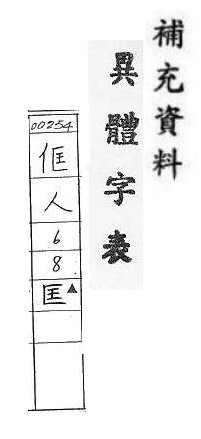 補充資料
異體字表
00254
恇
人
6
8
匡▲